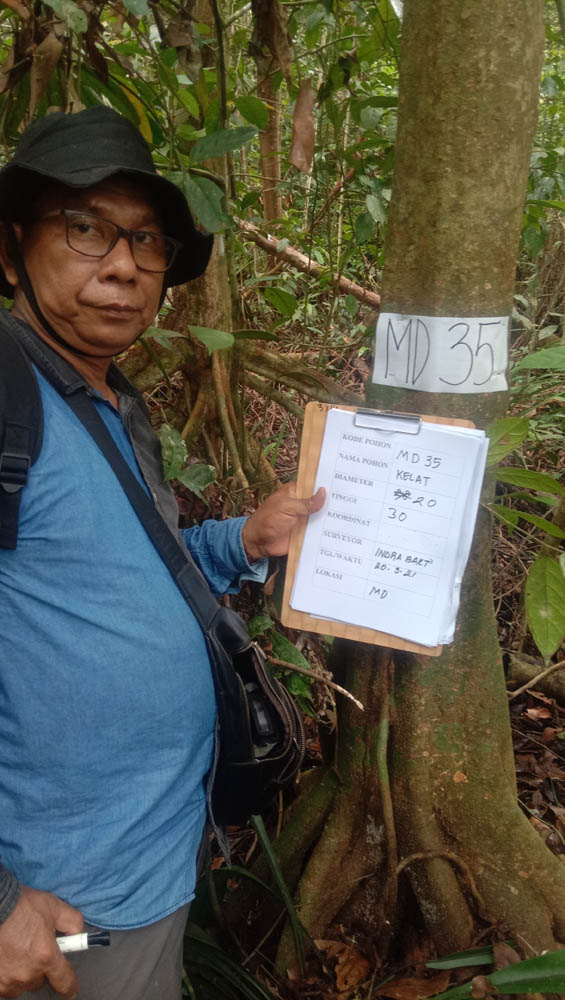 MD 35
KODE POHON MD 35
NAMA POHON KELAT
DIAMETER 20
TINGGI 30
KOORDINAT
SURVEYOR INDRA BAKTI
TGL/WAKTU 20-3-21
LOKASI MD